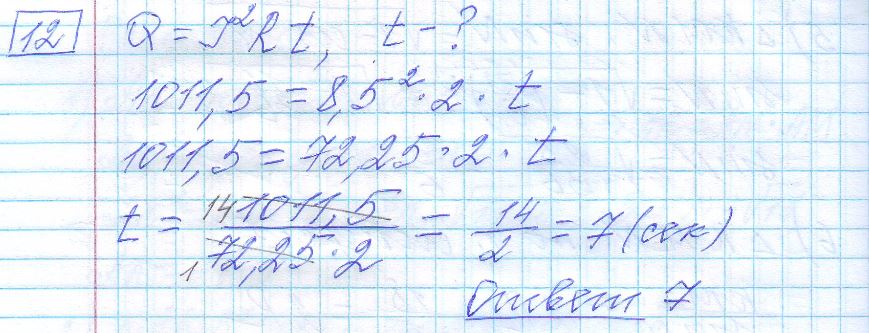 12 Q = I²Rt, t - ?
1011,5 = 8,5² · 2 · t
1011,5 = 72,25 · 2 · t
t = 14 1011,5 / 1 72,25 · 2 = 14/2 = 7 (сек)
Ответ 7